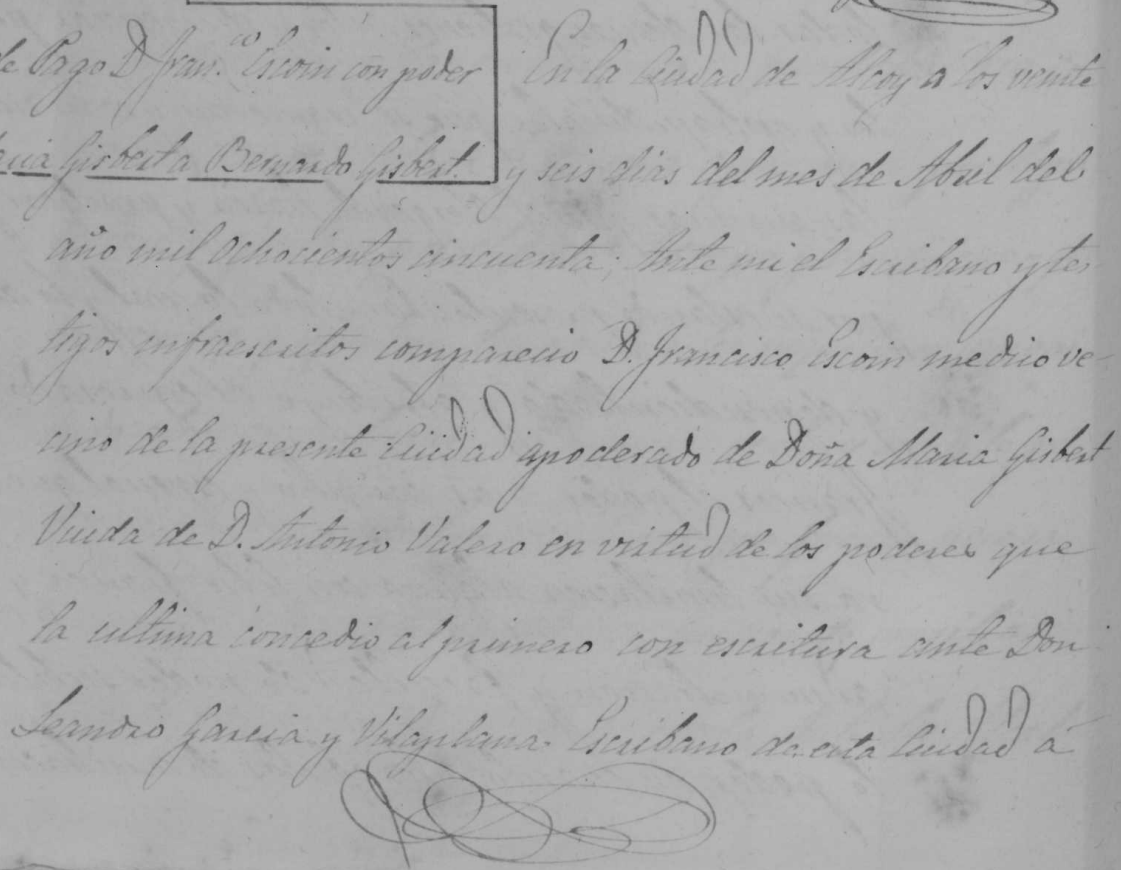 de Pago D. Fran.co Escoin con poder
Maria Gisbert a Bernardo Gisbert.
En la Ciudad de Alcoy a los veinte
y seis dias del mes de Abril del
año mil ochocientos cincuenta; Ante mi el Escribano y tes
tigos infraescritos comparecio D. Francisco Escoin medico ve-
cino de la presente Ciudad apoderado de Doña Maria Gisbert
Viuda de D. Antonio Valero en virtud de los poderes que
la ultima concedio al primero con escritura ante Don
Leandro Garcia y Vilaplana Escribano de esta Ciudad á